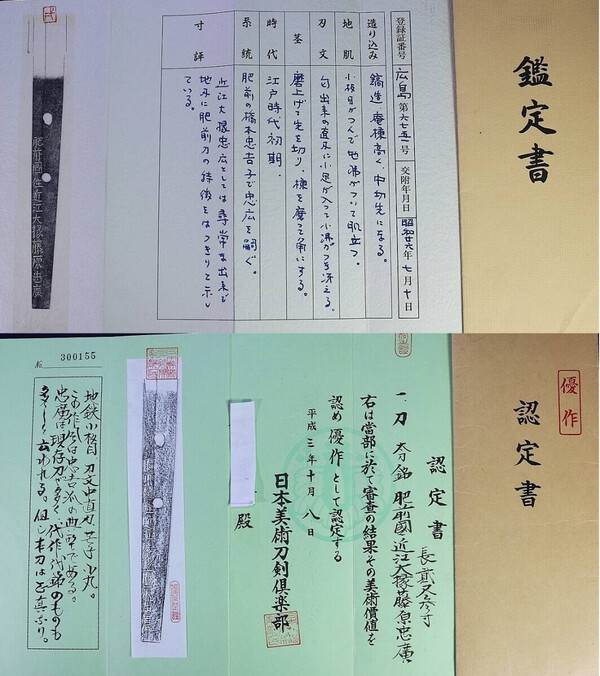 鑑定書
登録証番号 広島 第六七五一号 交附年月日 昭和廿六年七月十日
造り込み 鎬造、庵棟高く、中切先になる。
地肌 小板目がつんで地沸がついて肌立つ。
刃文 匂出来の直刃に小足が入って小沸がつき冴える。
茎 磨上げて先を切り、棟を磨って角にする。
時代 江戸時代初期。
系統 肥前の橋本忠吉子で忠広を嗣ぐ。
寸評 近江大掾忠広としては尋常な出来で
地刃に肥前刀の特徴をはっきりと示し
ている。
肥前國住近江大掾藤原忠廣
優作
認定書
認定書
長貳尺参寸
一、刀 太刀銘 肥前國近江大掾藤原忠廣
右は當部に於て審査の結果その美術價値を
認め優作として認定する
平成三年十月八日
日本美術刀剣倶楽部
殿
300155
地鉄小板目 刃文中直刃 芒子小丸。
この作風は忠吉流の典型である。
忠廣は現存刀が多く代作代銘のものも
多しと云われる。但し本刀は正真なり。